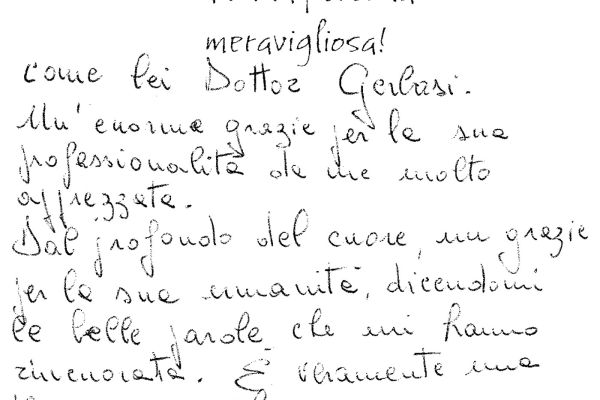 meravigliosa!
come lei Dottor Gerbasi.
Un' enorme grazie per la sua
professionalità da me molto
apprezzata.
Dal profondo del cuore, un grazie
per la sua umanità, dicendomi
le belle parole che mi hanno
rincuorata. È veramente una